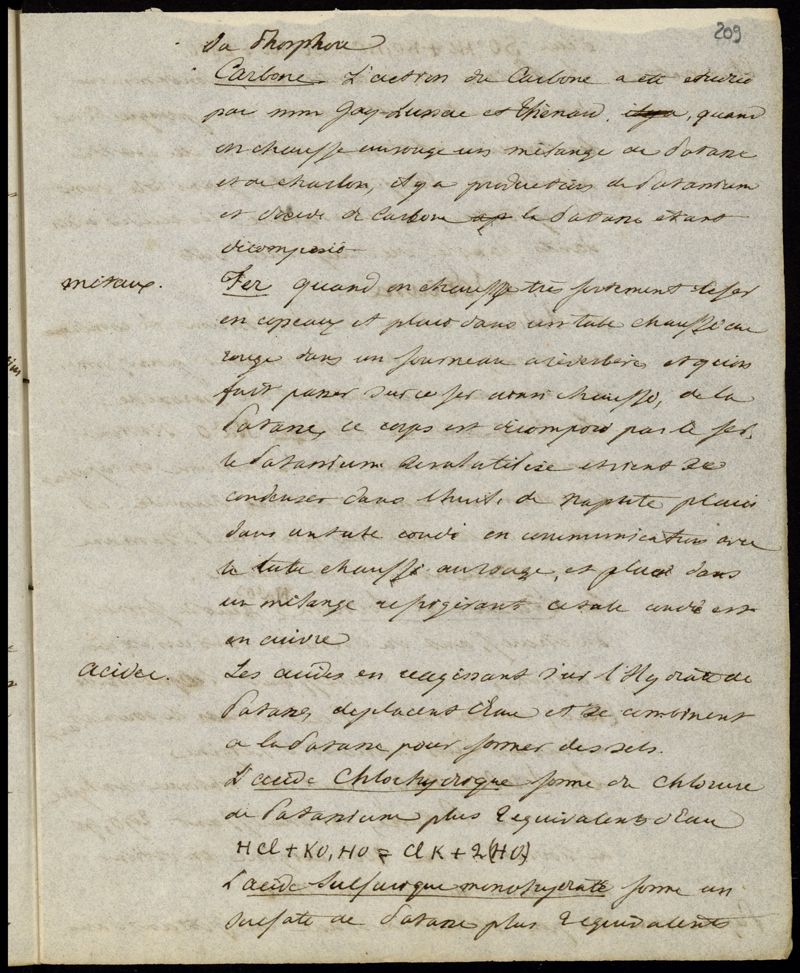 209
du Phosphore
Carbone. L'action du Carbone a été étudiée
par mm Gay-Lussac et Thénard. il y a, quand
on chauffe au rouge un mélange de Potasse
et de charbon, il y a production de Potassium
et oxide de Carbone la Potasse étant
décomposée
métaux.
Fer quand on chauffe très fortement le fer
en copeaux et placé dans un tube chauffé au
rouge dans un fourneau à réverbère et qu'on
fait passer sur ce fer ainsi chauffé, de la
Potasse, ce corps est décomposé par le fer,
le Potassium se volatilise et vient se
condenser dans l'huile de Naphte placée
dans un tube coudé en communication avec
le tube chauffé au rouge, et placé dans
un mélange réfrigérant ce tube coudé est
en cuivre
acides.
Les acides en réagissant sur l'Hydrate de
Potasse, déplacent l'Eau et se combinent
a la Potasse pour former des sels.
L'acide Chlorhydrique forme du Chlorure
de Potassium plus 2 equivalents d'Eau
HCl + KO, HO = Cl K + 2(HO)
L'acide Sulfurique monohydraté forme un
sulfate de Potasse plus 2 equivalents